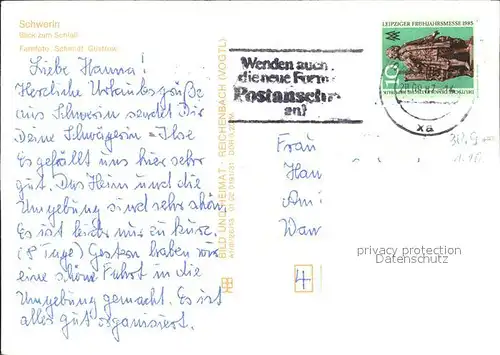 Schwerin
Blick zum Schloß
Farbfoto: Schmidt, Güstrow
Liebe Hanna!
Herzliche Urlaubsgrüße
aus Schwerin sendet Dir
Deine Schwägerin – Ilse
Es gefällt uns hier sehr
gut. Das Heim und die
Umgebung sind sehr schön,
Es ist leider nur zu kurz.
(8 Tage) Gestern haben wir
eine schöne Fahrt in die
Umgebung gemacht. Es ist
alles gut organisiert.
BILD UND HEIMAT REICHENBACH (VOGTL)
Wenden auch
die neue Form
Postanschr
an!
LEIPZIGER FRÜHJAHRSMESSE 1985
10
DDR
xa
Frau
Han
Am
War
4
privacy protection
Datenschutz